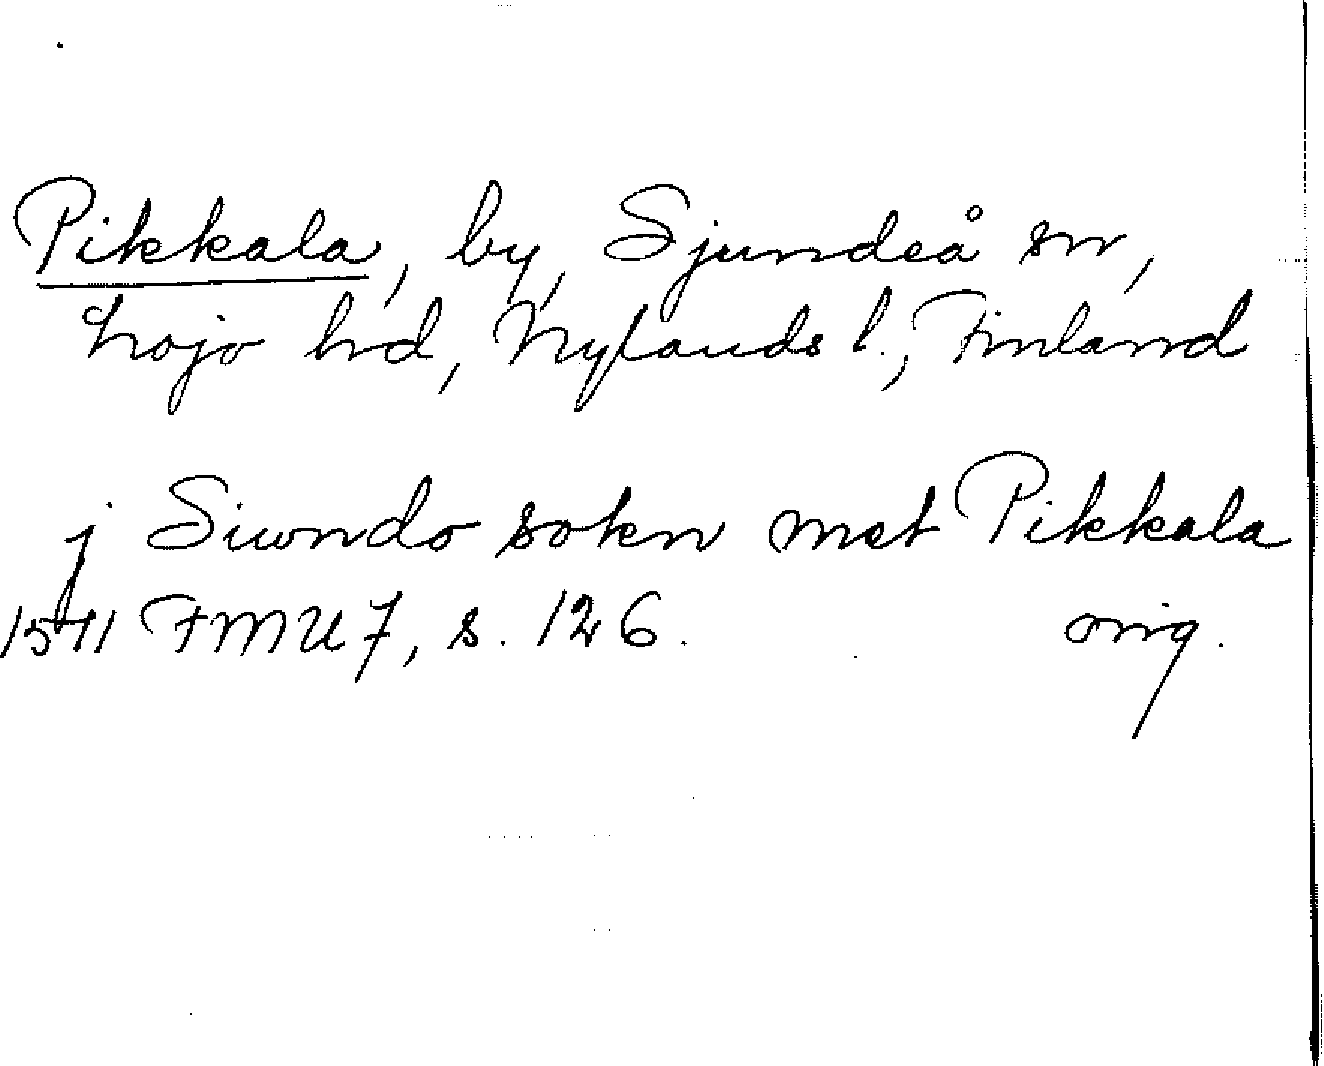 Pikkala, by, Sjundeå sn,
Lojo hd, Nylands l., Finland
j Siwndo sokn met Pikkala
1511 FMU 7, s. 126. orig.